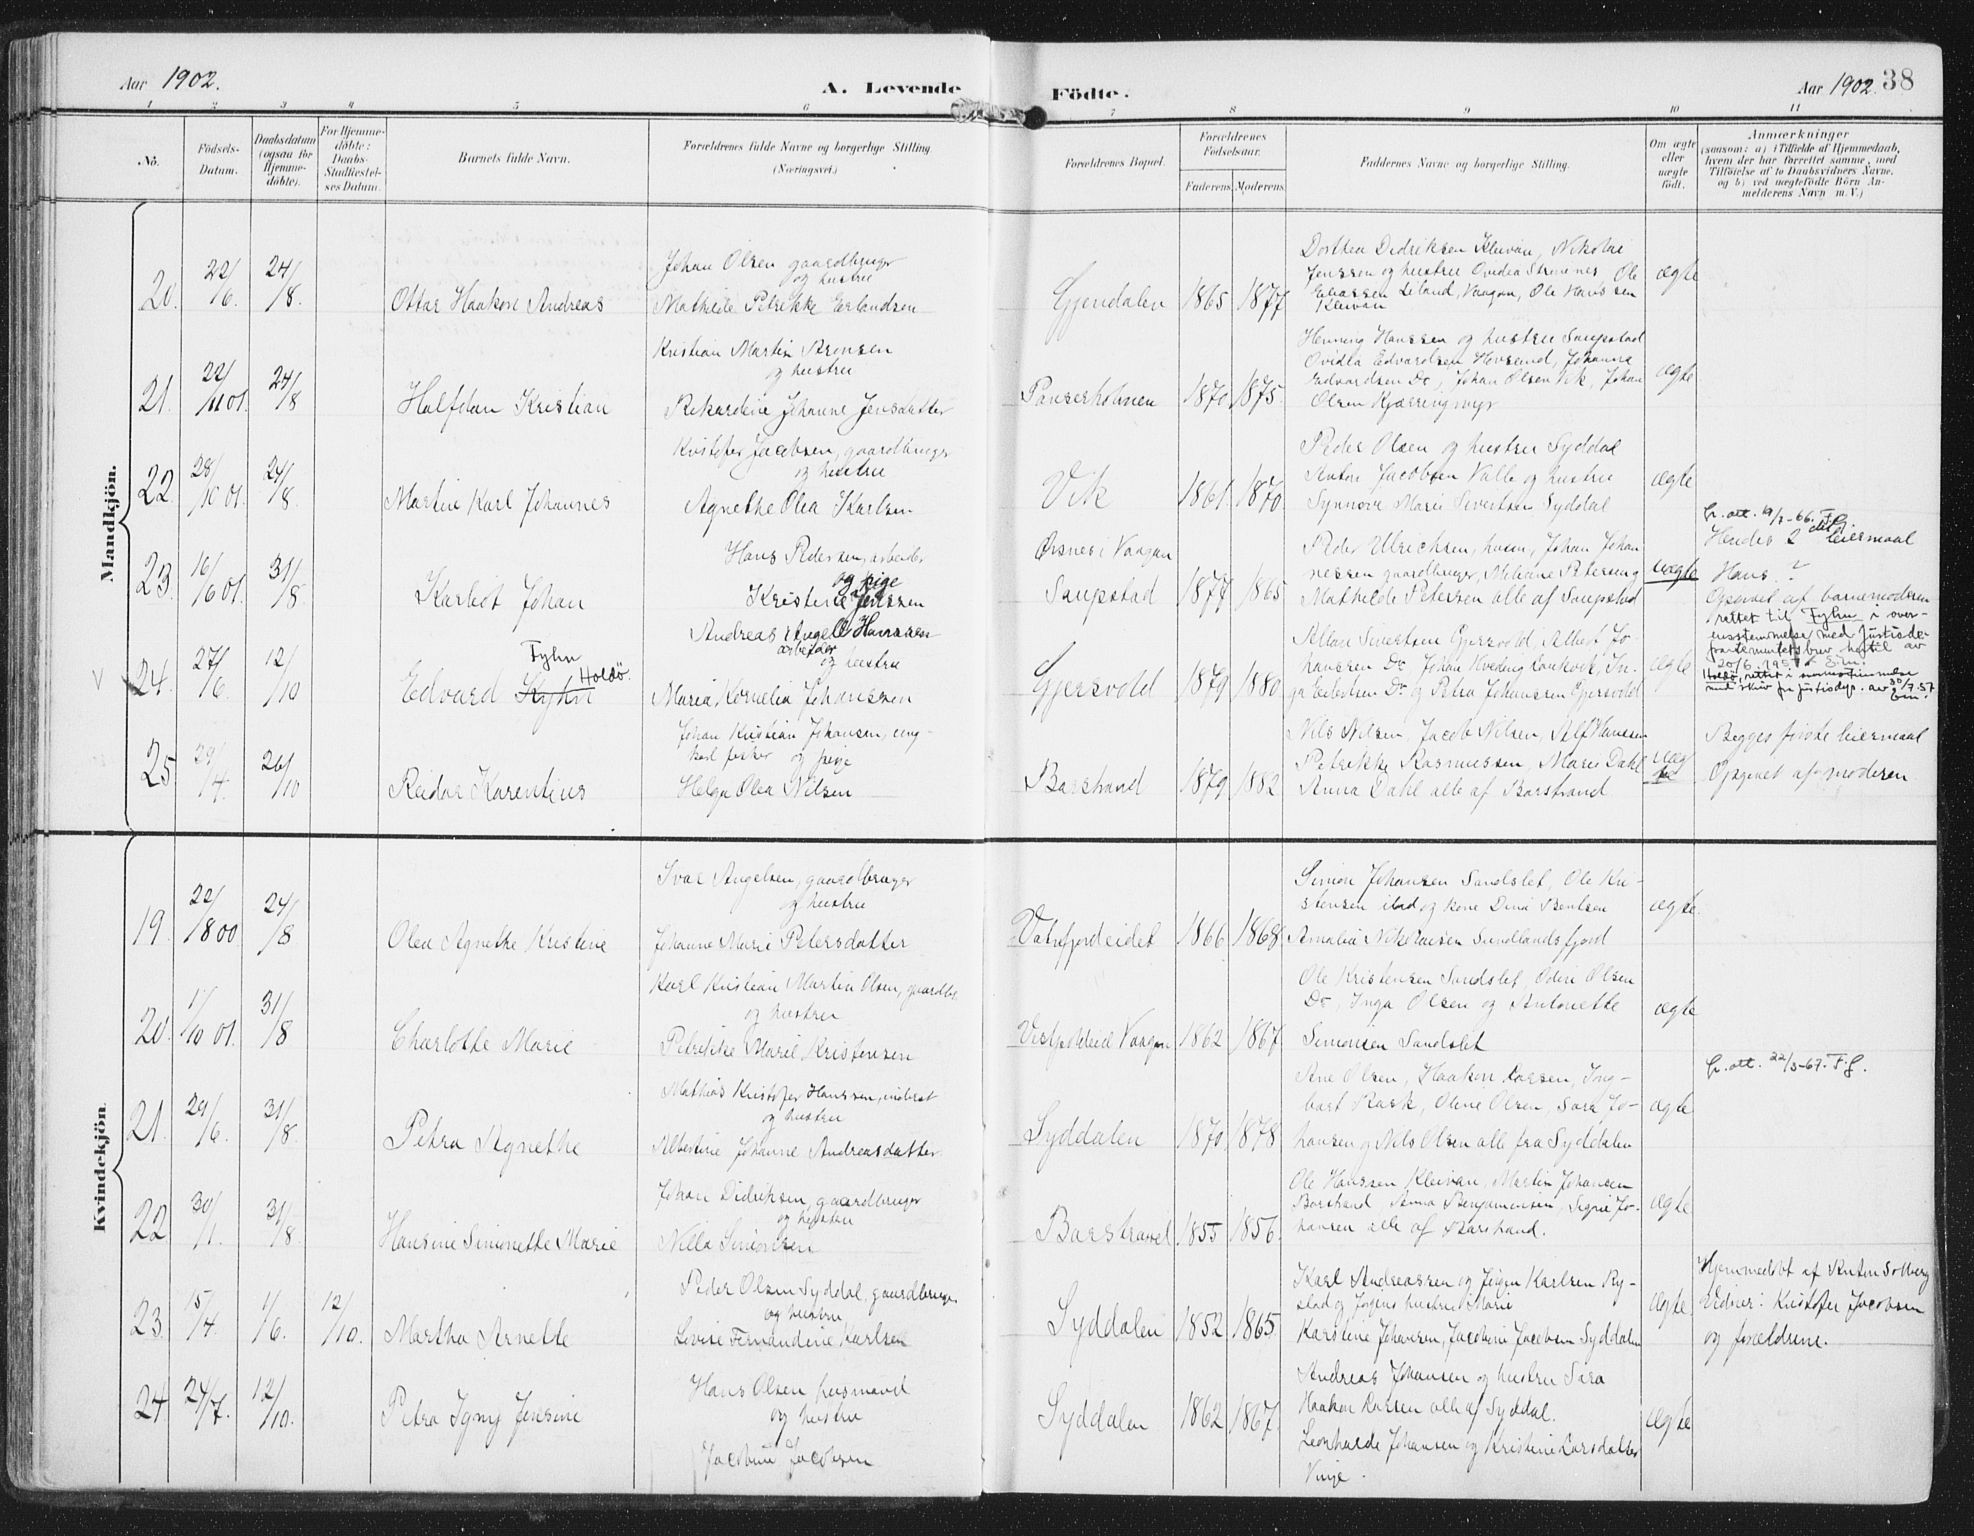 Aar 1902.
A. Levende Födte.
Aar 1902. 38
1 2 3 4 5 6 7 8 9 10 11
No.
Födsels-
Datum.
Daabsdatum
(ogsaa for
Hjemme-
döbte).
For Hjemme-
döbte:
Daabs-
Stadfæstel-
ses Datum.
Barnets fulde Navn.
Forældrenes fulde Navne og borgerlige Stilling
(Næringsvei.)
Forældrenes Bopæl.
Forældrenes
Födselsaar.
Faderens Moderens
Faddernes Navne og borgerlige Stilling.
Om ægte
eller
uægte
födt.
Anmærkninger
(saasom: a) i Tilfælde af Hjemmedaab,
hvem der har forrettet samme, med
Tilföielse af to Daabsvidners Navne,
og b) ved uægtefödte Börn An-
melderens Navn m. V.)
Mandkjön.
20. 22/6. 24/8.
Ottar Haakon Andreas
Johan Olsen gaardbruger
og hustru
Mathilde Petrikke Erlandsen
Gjendalen 1865 1877
Dorthea Didriksen Kleivan, Nikolai
Jenssen og hustru Ovidea Strønnes Ole
Eliassen Liland, Vaagan, Ole Hanssen
Kleivan
ægte
21. 22/11 01. 24/8
Halfdan Kristian
Kristian Martin Aronsen
og hustru
Rikardine Johanne Jensdatter
Panserholmen 1870 1875.
Henning Hanssen og hustru Saupstad
Ovidea Edvardsen Hovsund, Johanna
Edvardsen Do, Johan Olsen Vik, Johan
Olsen Kjærringmyr
ægte
22. 28/10 01. 24/8
Martin Karl Johannes
Kristofer Jacobsen, gaardbruger
og hustru
Agnethe Olea Karlsen
Vik 1861 1870
Peder Olsen og hustru Syddal
Anton Jacobsen Valle og hustru
Synnøve Marie Sivertsen Syddal
ægte
23 16/6 01. 31/8
Karlot Johan
Hans Pedersen, arbeider
og pige
Kristine Jenssen
Ørsnes i Vaagan
Saupstad 1877 1865
Peder Ulrichsen, husm, Johan Johan
nessen gaardbruger, Miliane Petersen og
Mathilde Petersen alle af Saupstad
uægte
fr. att. 19/7-66. F.G.
Hendes 2 det leiermaal
Hans ?
Opgivet af barnemoderen
24. 27/6. 12/10
Edvard Kyhn Fyhn Holdø.
Andreas Angel Hanssen
arbeider
og hustru
Maria Kornelia Johanssen
Gjersvold 1879 1880
Allan Sivertsen Gjersvold, Albert Jo-
hanssen Do Johan Kveding Laukvik, In-
ga Do og Petra Johanssen Gjersvold
ægte
rettet til Fyhn i over-
ensstemmelse med Justisde-
partementets brev hertil av
20/6. 1957
Holdø, rettet i overensstemmelse
med skriv fra justisdep. av 30/7.57
25 29/4. 26/10
Reidar Karentius
Johan Kristian Johansen, ung-
karl fisker og pige
Helga Olea Nilsen
Barstrand 1879 1882
Nils Nilsen, Jacob Nilsen, Alf Hanssen
Petrikke Rasmussen, Marie Dahl
Anna Dahl alle af Barstrand
uæg
te
Begges første leiermaal
Opgivet af moderen
Kvindekjön.
19. 22/8 00. 24/8
Olea Agnethe Kristine
Ivar Angelsen, gaardbruger
og hustru
Johanne Marie Petersdatter
Vatnfjordeidet 1866 1868
Simon Johansen Sandslet, Ole Kri-
stensen ibid og kone Dina Bentsen
Amalia Nikolaisen Sundlandsfjord
ægte.
20. 1/10 01. 31/8
Charlotte Marie
Karl Kristian Martin Olsen, gaardbr.
og hustru
Petrikke Marie Kristensen
Vaagan 1862 1867.
Ole Kristensen Sandslet, Odin Olsen
Do, Inga Olsen og Antonette
Simonsen Sandslet
ægte
21. 29/6. 31/8.
Petra Agnethe
Mathias Kristofer Hanssen, inderst
og hustru
Albertine Johanne Andreasdatter.
Syddalen 1870 1878
Ane Olsen, Haakon Larsen, Ing-
bart Rask, Oline Olsen, Sara Jo-
hansen og Nils Olsen alle fra Syddalen
ægte
fr. att. 22/3-67. F.G.
22 30/1. 31/8.
Hansine Simonette Marie
Johan Didriksen, gaardbruger
og hustru
Nilla Simonsen
Barstrand 1855 1856.
Ole Hanssen Kleivan, Martin Johansen
Barstrand Anna Benjaminsen, Signe Jo-
hansen alle af Barstrand.
ægte
23 15/4. 1/6. 12/10.
Martha Arnette
Peder Olsen Syddal, gaardbruger
og hustru
Lovise Fernandine Karlsen
Syddalen 1852 1865.
Karl Andreassen og Jørgen Karlsen Ry-
stad og Jørgens hustru Marie
Karstine Johansen, Jacobine Jacobsen Syddalen
ægte
Hjemmedøbt af Anton Solberg
Vidner: Kristofer Jacobsen
og forældrene.
24. 24/7. 12/10.
Petra Igny Jensine
Hans Olsen husmand
og hustru
Jacobine Jacobsen
Syddalen 1862 1867.
Andreas Johansen og hustru Sara
Haakon Larsen alle af Syddal.
Leonharde Johansen og Kristine Larsdatter
Vinje.
ægte